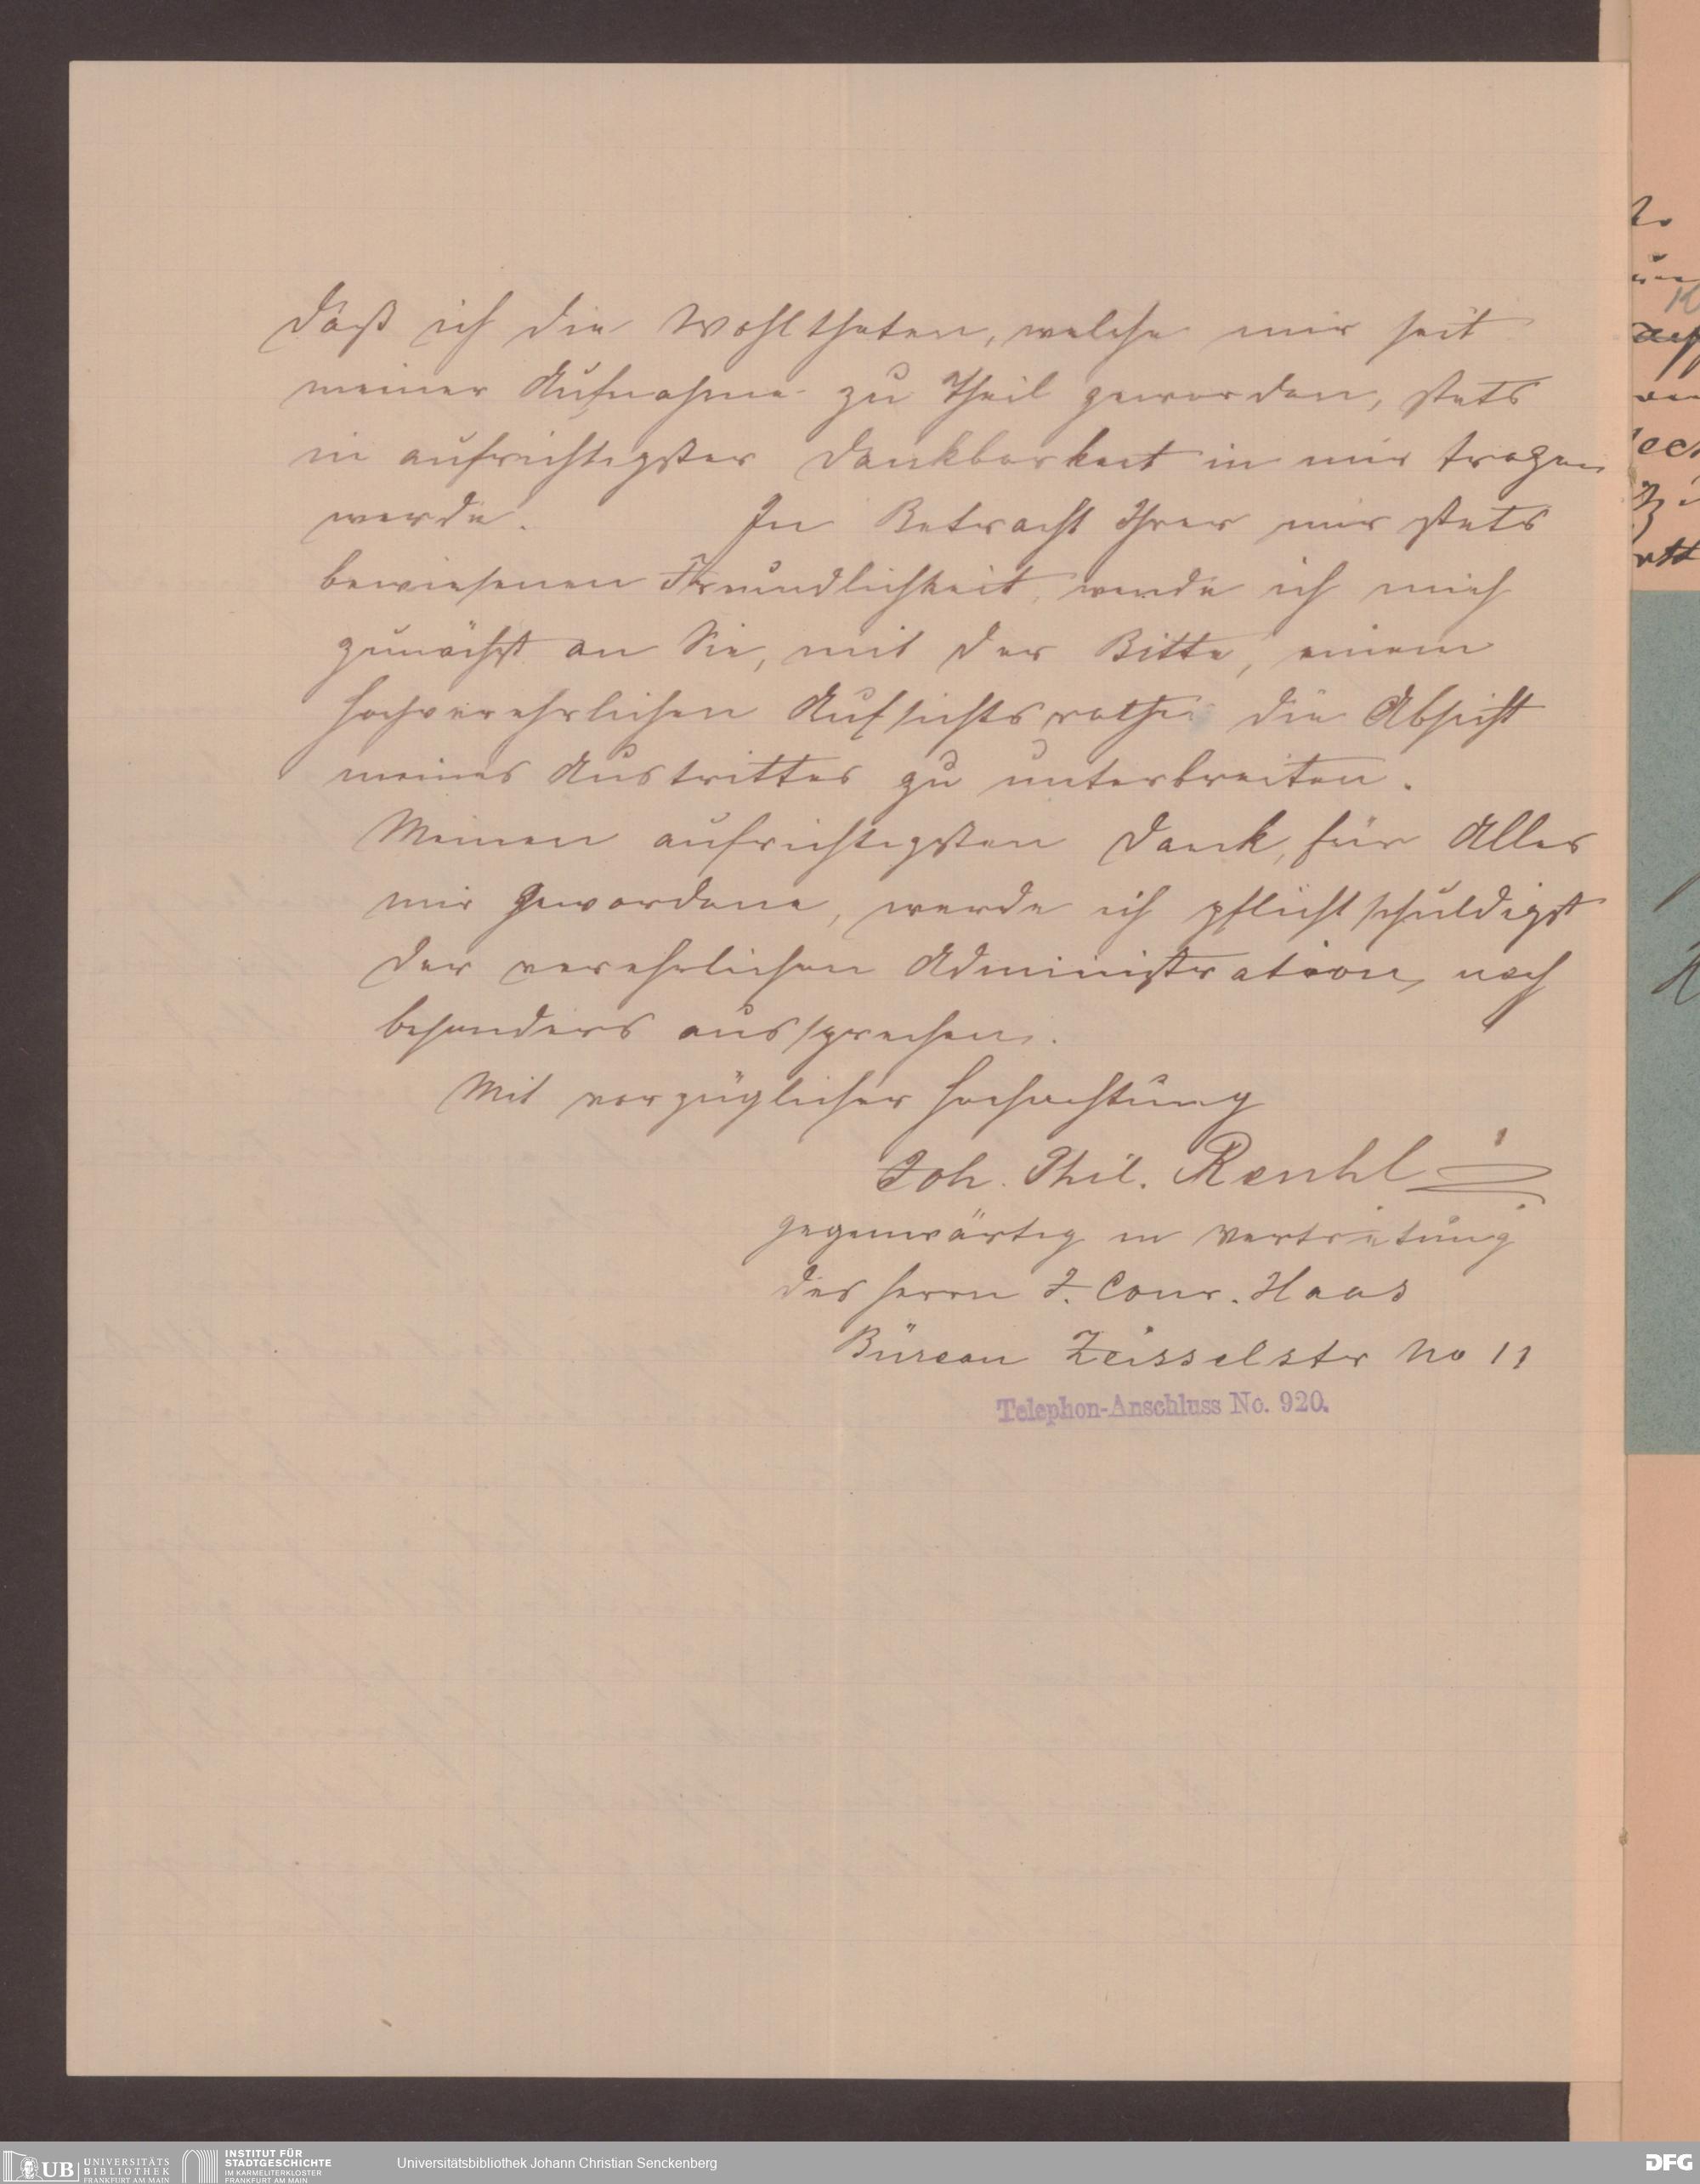 daß ich die Wohlthaten, welche mir seit
meiner Aufnahme zu Theil geworden, stets
in aufrichtigster Dankbarkeit in mir tragen
werde. In Betracht Ihrer mir stets
bewiesenen Freundlichkeit, wende ich mich
zunächst an Sie, mit der Bitte, einem
hochverehrlichen Aufsichtsrathe die Absicht
meines Austrittes zu unterbreiten.
Meinen aufrichtigsten Dank, für Alles
mir Gewordene, werde ich pflichtschuldigst
der verehrlichen Administration, noch
besonders aussprechen.
Mit vorzüglicher Hochachtung
Joh. Phil.
gegenwärtig in Vertretung
des Herrn J. Conr. Haas
Büreau Zeisselstr No 11
Telephon-Anschluss No. 920.
UB UNIVERSITÄTS BIBLIOTHEK FRANKFURT AM MAIN
INSTITUT FÜR STADTGESCHICHTE IM KARMELITERKLOSTER FRANKFURT AM MAIN
Universitätsbibliothek Johann Christian Senckenberg
DFG